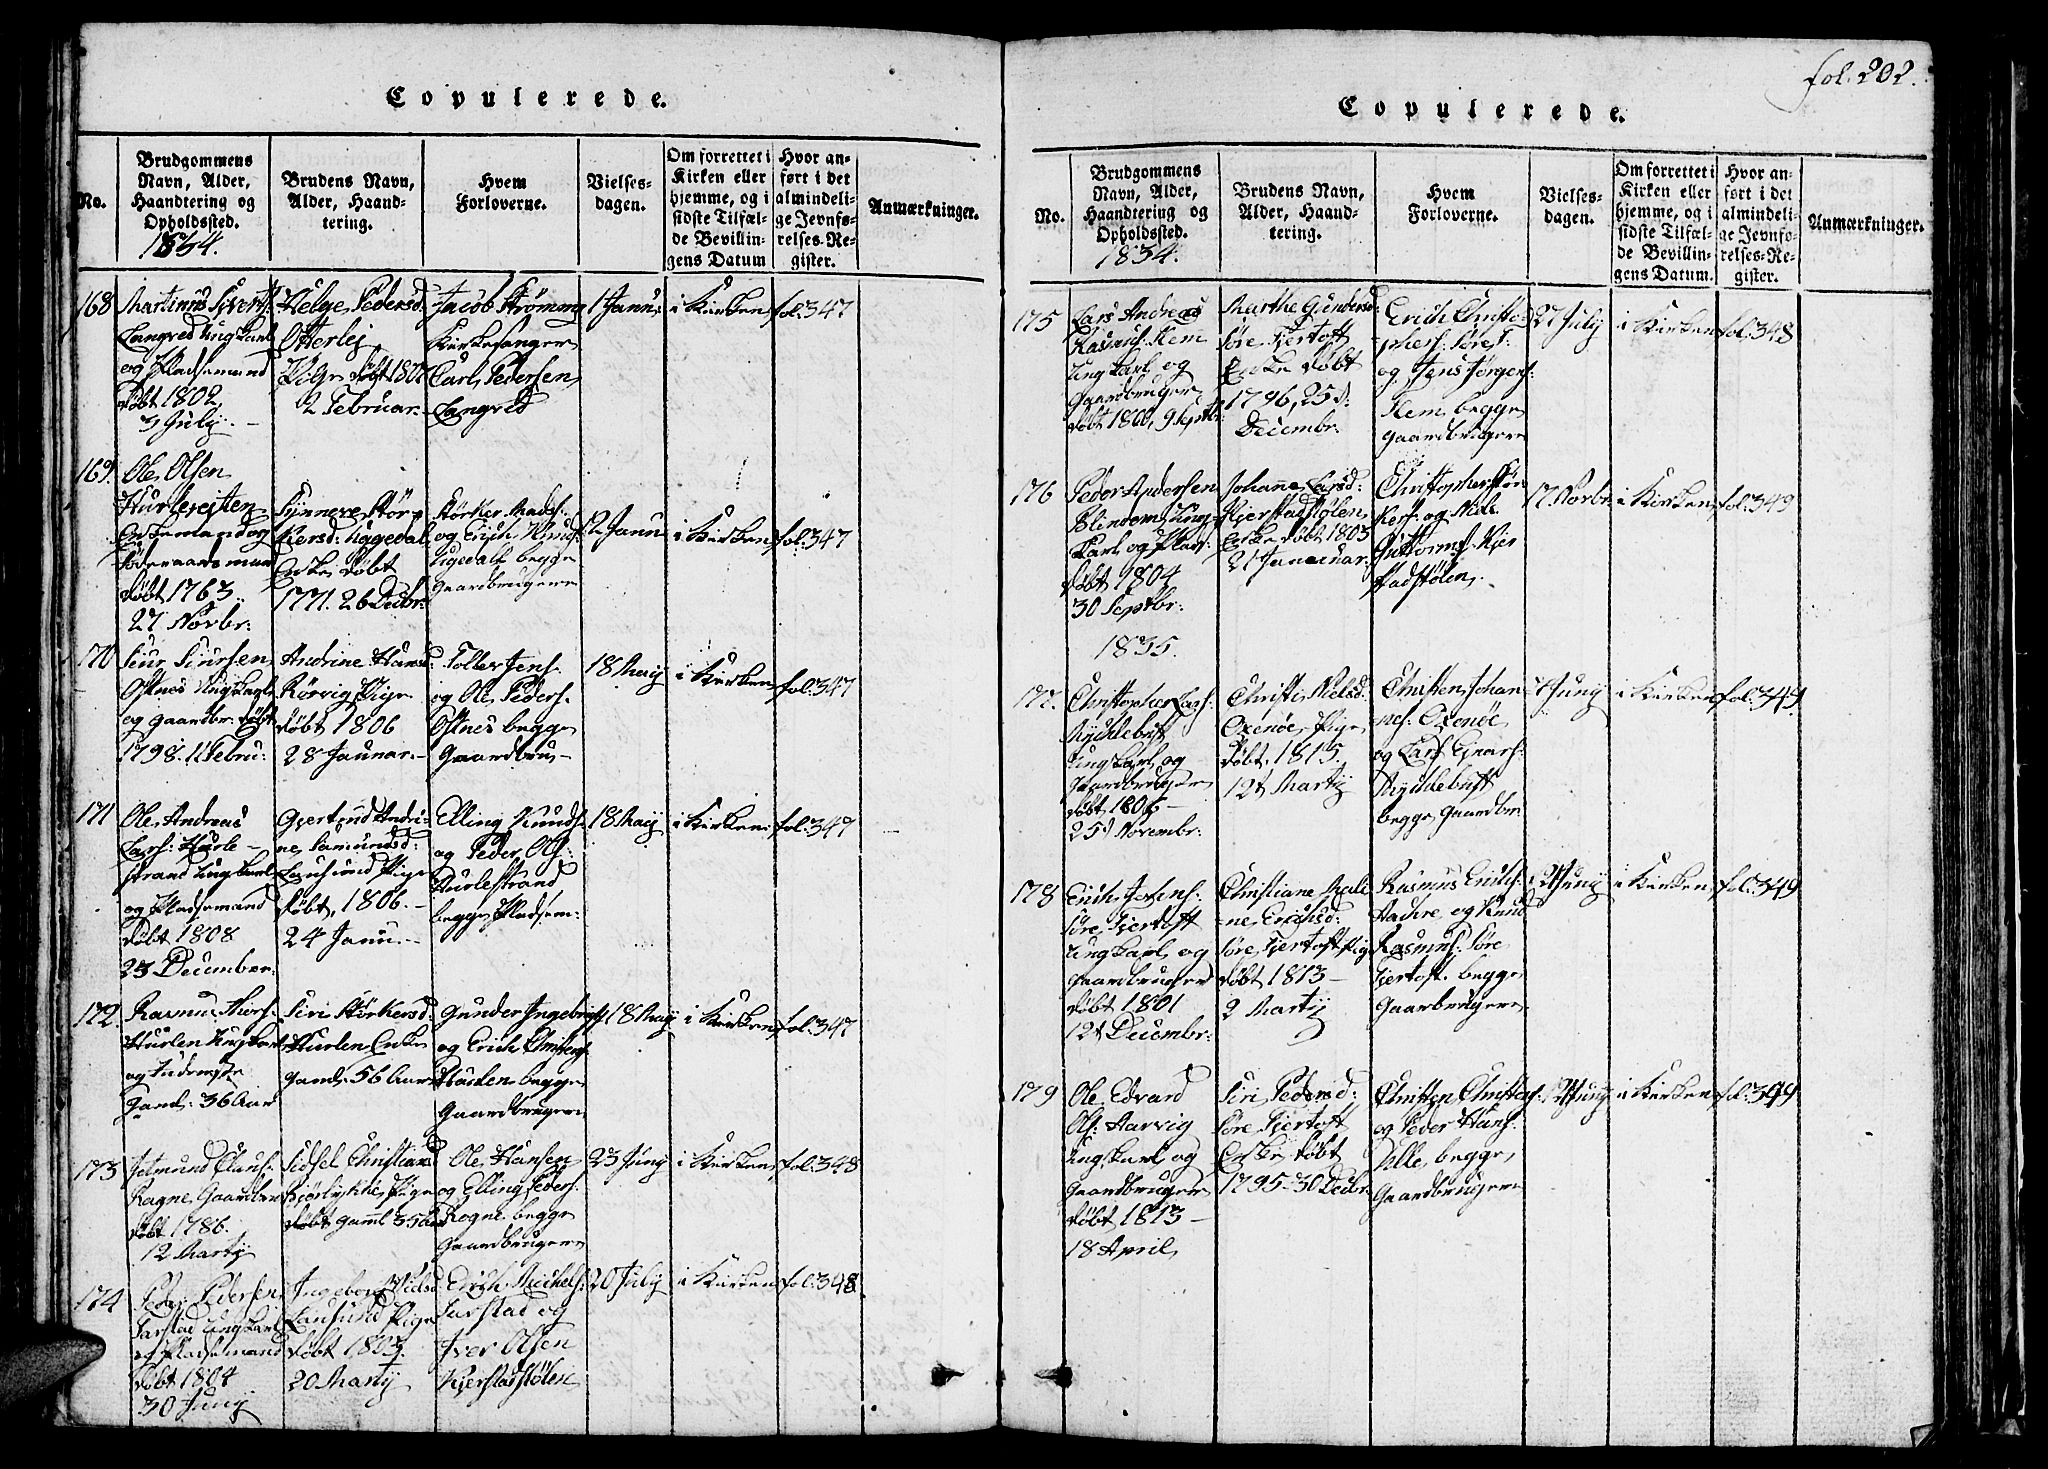 fol. 202.
Copulerede.
No.
Brudgommens
Navn, Alder,
Haandtering og
Opholdssted.
1834.
Brudens Navn,
Alder, Haand-
tering.
Hvem
Forloverne.
Vielses-
dagen.
Om forrettet i
Kirken eller
hjemme, og i
sidste Tilfæl-
de Bevillin-
gens Datum
Hvor an-
ført i det
almindeli-
ge Jevnfø-
relses-Re-
gister.
Anmærkninger.
168
Martinus Siverts:
Langred Ungkarl
og Pladsemand
døbt 1802
3 July.
Helge Pedersd:
Otterlej
Pige døbt 1807
2 Februar.
Jacob Strömeng
Kirkesanger
Carl Pedersen
Langred
1 Janu:
i Kirken
fol. 347
169.
Ole Olsen
Hurlesejtten
Enkemand og
døbt 1763
27 Novbr:
Synneve Stör-
kersd: Uggedal
Enke døbt
1771. 26 Decbr:
Störker Mads:
og Erich Knuds:
Ugedal begge
Gaardbrugere
12 Janu
i Kirken
fol. 347
170
Siur Siursen
Ostnes Ungkarl
og gaardbr: døbt
1798. 11 Febru:
Andrine Hansd:
Rörvig Pige
døbt 1806
28 Januar.
Toller Jens:
og Ole Peders:
Ostnes begge
Gaardbru-
18 Maij
i Kirken
fol. 347
171
Ole Andreas
Lars: Hurle-
strand Ungkarl
og Pladsemand
døbt 1808
23 December.
Gjertrud Andri-
ne Samundsd:
Lausund Pige
døbt 1806.
24 Janu.
Elling Knuds:
og Peder Ols:
Hurlestrand
begge Pladsem:
18 Maij
i Kirken
fol. 347
172.
Hurlen Ungkarl
og Inderste
Gaml: 36 Aar
Siri Störkersd:
Hurlen Enke
gaml: 56 Aar
Gunder Ingebrigts:
og Erich
Hurlen begge
Gaardbrugere
18 Maij
i Kirken
fol. 347
173
Jetmund Claus:
Ragne Gaardbru
døbt 1786.
12 Martij
Sidsel Christiansd
Bjørlykke Pige
døbt gaml 35 Aar
Ole Hansen
og Elling Peders:
Rogne begge
Gaardbrugere
23 Junij
i Kirken
fol. 348
174
Peder Pedersen
Farstad Ungkarl
og Pladsemand
døbt 1804
30 Junij
Ingeborg Nielsd
Lausund Pige
døbt 1803.
20 Martij
Erich Michels:
Farstad og
Iver Olsen
Kjerstadstölen
20 July
i Kirken
fol. 348
Copulerede.
No.
Brudgommens
Navn, Alder,
Haandtering og
Opholdssted.
1834.
Brudens Navn,
Alder, Haand-
tering.
Hvem
Forloverne.
Vielses-
dagen.
Om forrettet i
Kirken eller
hjemme, og i
sidste Tilfæl-
de Bevillin-
gens Datum.
Hvor an-
ført i det
almindeli-
ge Jevnfø-
relses-Re-
gister.
Anmærkninger.
175
Lars Andreas
Rasmus: Flem
Ungkarl og
Gaardbruger
døbt 1800, 9 Septbr
Marthe Gundersd:
Søre Fjertoft
Enke døbt
1796, 25d:
Decembr.
Erich Christo-
phers: Søre F:
og Jens Jørgens:
Flem begge
gaardbrugere
27 July
i Kirken
fol. 348
176
Peder Andersen
Blindem Ung-
karl og Plads:
døbt 1804
30 Septbr:
Johanne Larsd:
Kjerstadstølen
Enke døbt 1803
21 Januar.
Christopher Stör-
kers: og Nils
Guttorms: Kjer
stadstølen.
17 Novbr.
i Kirken
fol. 349
1835.
177.
Christopher Lars:
Myklebust
Ungkarl og
Gaardbruger
døbt 1806
25d Novembr:
Christi Nielsd:
Oxenøe Pige
døbt. 1815.
12t Martij
Christen Johan-
nes: Oxenöe
og Lars Einars:
Myklebust
begge Gaardbr.
7 Junij
i Kirken
fol. 349
178
Erich Jetens:
Søre Fjertoft
Ungkarl og
Gaardbruger
døbt 1801
12t Decembr:
Christiane Male
ne Erichsd:
Søre Fjertoft Pig
døbt 1813
2 Martij
Rasmus Erichs:
Aachre og Knud
Rasmus: Søre
Fjertoft. begge
Gaardbrugere
Junij
i Kirken
fol. 349
179
Ole Edvard
Ols: Aarvig
Ungkarl og
Gaardbruger
døbt 1813
18 April
Siri Pedersd:
Søre Fjertoft
Enke døbt
1795-30 Decbr.
Christen Christens:
og Peder Hans:
Ulle, begge
Gaardbrugere
Junij
i Kirken
fol. 349